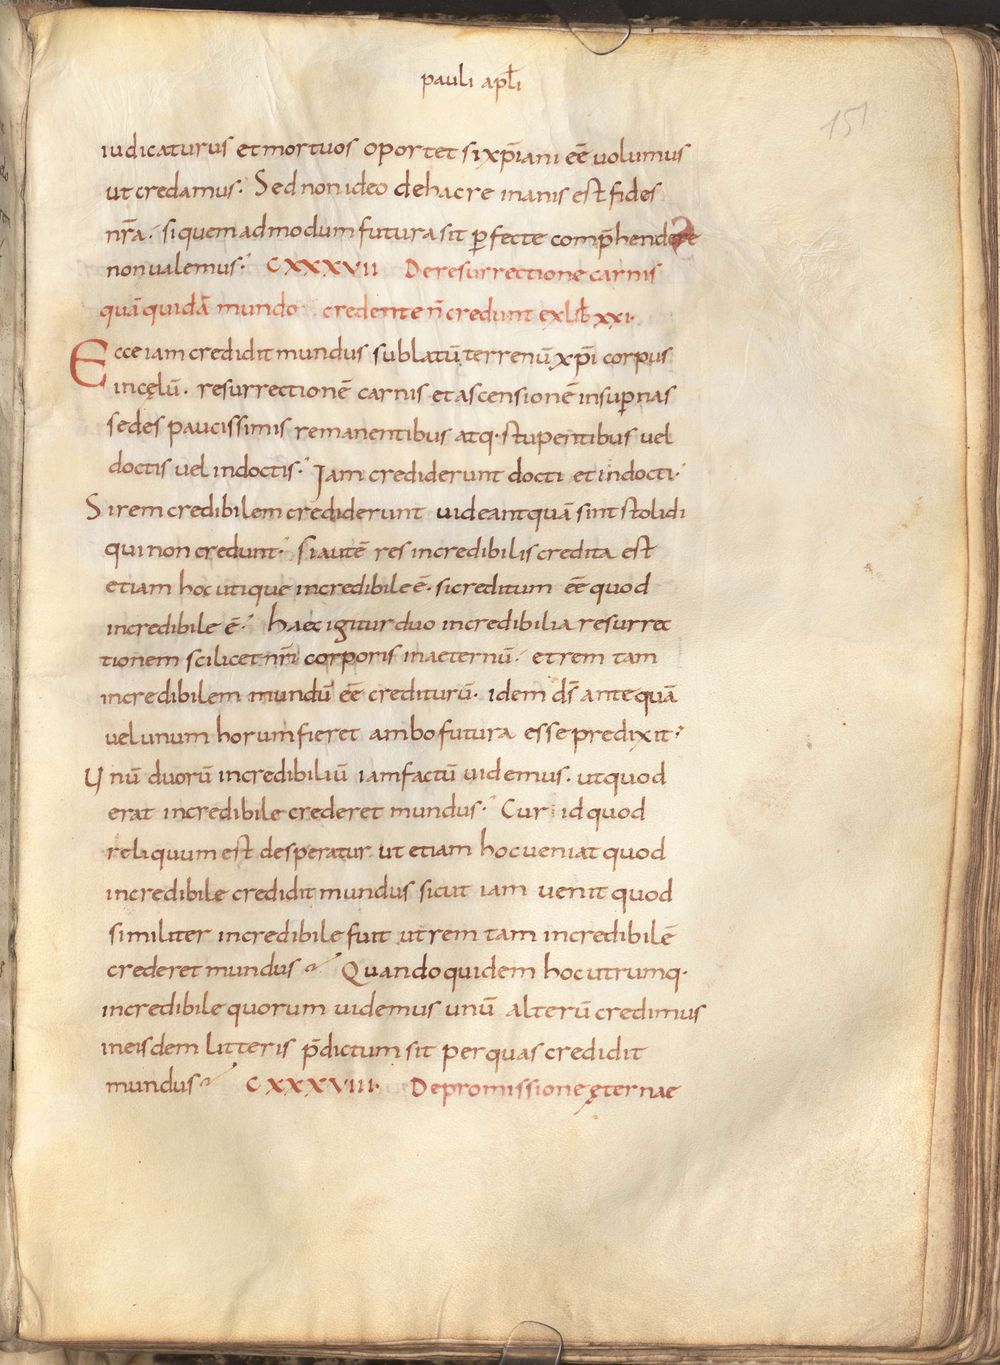 pauli apłi
151
iudicaturus et mortuos oportet si xp̅iani ee̅ uolumus
ut credamus. Sed non ideo de hac re inanis est fides
nr̅a. si quemadmodum futura sit ꝑfecte comp̅hendere
non ualemus. CXXXVII De resurrectione carnis
qua̅ quida̅ mundo credente n̅ credunt ex lib̅ xxi.
Ecce iam credidit mundus sublatu̅ terrenu̅ xp̅i corpus
in cęlu̅. resurrectione̅ carnis et ascensione̅ in suꝑnas
sedes paucissimis remanentibus atq. stupentibus uel
doctis uel indoctis. Iam crediderunt docti et indocti.
Si rem credibilem crediderunt uideant qua̅ sint stolidi
qui non credunt. si aute̅ res incredibilis credita est
etiam hoc utique incredibile e̅. si creditum ee̅ quod
incredibile e̅. haec igitur duo incredibilia resurrec
tionem scilicet nr̅i corporis in aeternu̅. et rem tam
incredibilem mundu̅ ee̅ credituru̅. idem ds̅ antequa̅
uel unum horum fieret ambo futura esse predixit.
Unu̅ duoru̅ incredibiliu̅ iam factu̅ uidemus. ut quod
erat incredibile crederet mundus. Cur id quod
reliquum est desperatur ut etiam hoc ueniat quod
incredibile credidit mundus sicut iam uenit quod
similiter incredibile fuit ut rem tam incredibile̅
crederet mundus Quandoquidem hoc utrumq.
incredibile quorum uidemus unu̅ alteru̅ credimus
in eisdem litteris p̅dictum sit per quas credidit
mundus CXXXVIII. De promissione ęternae